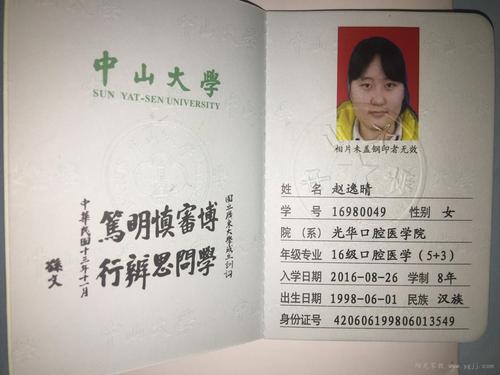 中山大學
SUN YAT-SEN UNIVERSITY
國立廣東大學成立訓詞
博學
審問
慎思
明辨
篤行
中華民國十三年十一月
孫文
相片未盖钢印者无效
姓名 赵逸晴
学号 16980049 性别 女
院(系) 光华口腔医学院
年级专业 16级口腔医学(5+3)
入学日期 2016-08-26 学制 8年
出生日期 1998-06-01 民族 汉族
身份证号 420606199806013549
www.ygjj.com